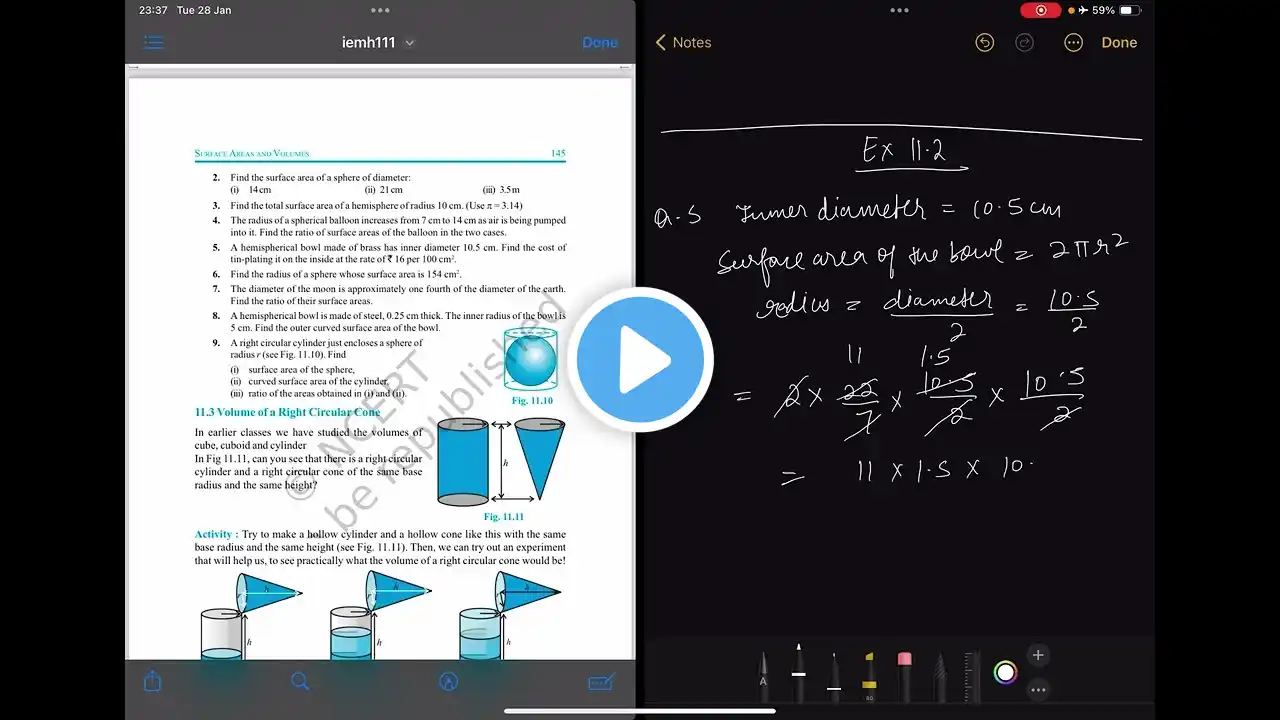 23:37 Tue 28 Jan
iemh111
Done
SURFACE AREAS AND VOLUMES 145
2. Find the surface area of a sphere of diameter:
(i) 14 cm (ii) 21 cm (iii) 3.5 m
3. Find the total surface area of a hemisphere of radius 10 cm. (Use π = 3.14)
4. The radius of a spherical balloon increases from 7 cm to 14 cm as air is being pumped
into it. Find the ratio of surface areas of the balloon in the two cases.
5. A hemispherical bowl made of brass has inner diameter 10.5 cm. Find the cost of
tin-plating it on the inside at the rate of ₹ 16 per 100 cm².
6. Find the radius of a sphere whose surface area is 154 cm².
7. The diameter of the moon is approximately one fourth of the diameter of the earth.
Find the ratio of their surface areas.
8. A hemispherical bowl is made of steel, 0.25 cm thick. The inner radius of the bowl is
5 cm. Find the outer curved surface area of the bowl.
9. A right circular cylinder just encloses a sphere of
radius r (see Fig. 11.10). Find
(i) surface area of the sphere,
(ii) curved surface area of the cylinder,
(iii) ratio of the areas obtained in (i) and (ii).
Fig. 11.10
11.3 Volume of a Right Circular Cone
In earlier classes we have studied the volumes of
cube, cuboid and cylinder
In Fig 11.11, can you see that there is a right circular
cylinder and a right circular cone of the same base
radius and the same height?
h
Fig. 11.11
© NCERT
be republished
Activity : Try to make a hollow cylinder and a hollow cone like this with the same
base radius and the same height (see Fig. 11.11). Then, we can try out an experiment
that will help us, to see practically what the volume of a right circular cone would be!
h h h
h h h
59%
Notes
Done
Ex 11.2
Q.5 Inner diameter = 10.5 cm
Surface area of the bowl = 2πr²
radius = diameter/2 = 10.5/2
11 1.5
= 2 × 22/7 × 10.5/2 × 10.5/2
= 11 × 1.5 × 10.
A
80